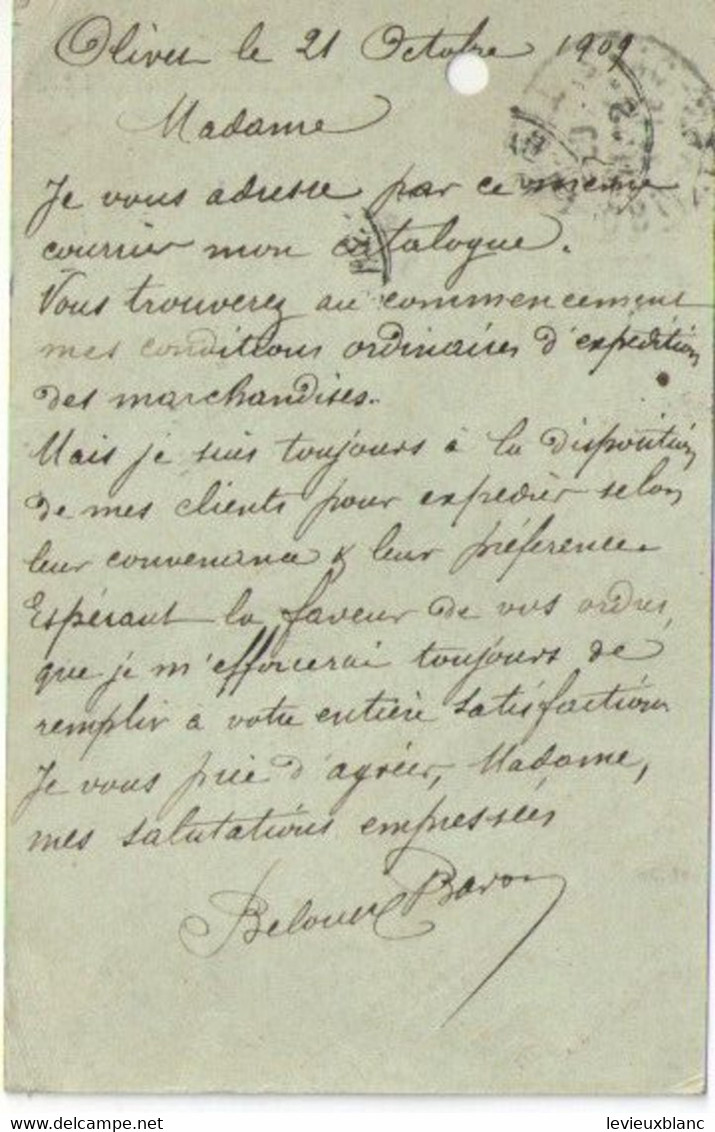 Olivet le 21 Octobre 1909
Madame
Je vous adresse par ce meme
courrier mon catalogue.
Vous trouverez au commencement
mes conditions ordinaires d'expedition
des marchandises.
Mais je suis toujours à la disposition
de mes clients pour expedier selon
leur convenance & leur préference.
Espérant la faveur de vos ordres
que je m'efforcerai toujours de
remplir à votre entière satisfaction
Je vous prie d'agréer, Madame,
mes salutations empressées
Baron
delcampe.net
levieuxblanc